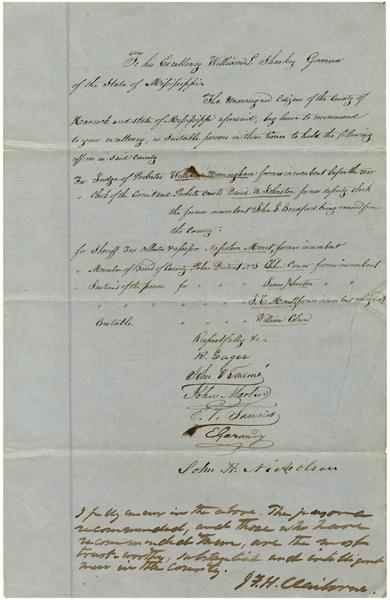 To his Excellency William L. Sharkey Governor
of the State of Mississippi.
The Undersigned Citizens of the County of
Hancock and state of Mississippi aforesaid, beg leave to recommend
to your excellency, as suitable persons in these times to hold the following
offices in Said County
For Judge of Probates William former incumbent before the war
" Clerk of the Circuit and Probate Courts David W. Johnston former deputy clerk
the former incumbent John J. being removed from
the County.
for Sheriff Tax Collector & assessor Napoleon Monet, former incumbent
" Member of Board of County Police District No 3 former incumbent
" Justices of the peace for " " Johnston
" " " " former incumbent
Constable. " " " William
Respectfully &c.
R. Eager
John V Toulmé
John Martin
E.
John H. Nicholson
I fully concur in the above. The persons
recommended, and those who have
recommended them, are the most
trust-worthy, substantial and intelligent
men in the County.
J. F. H. Claiborne